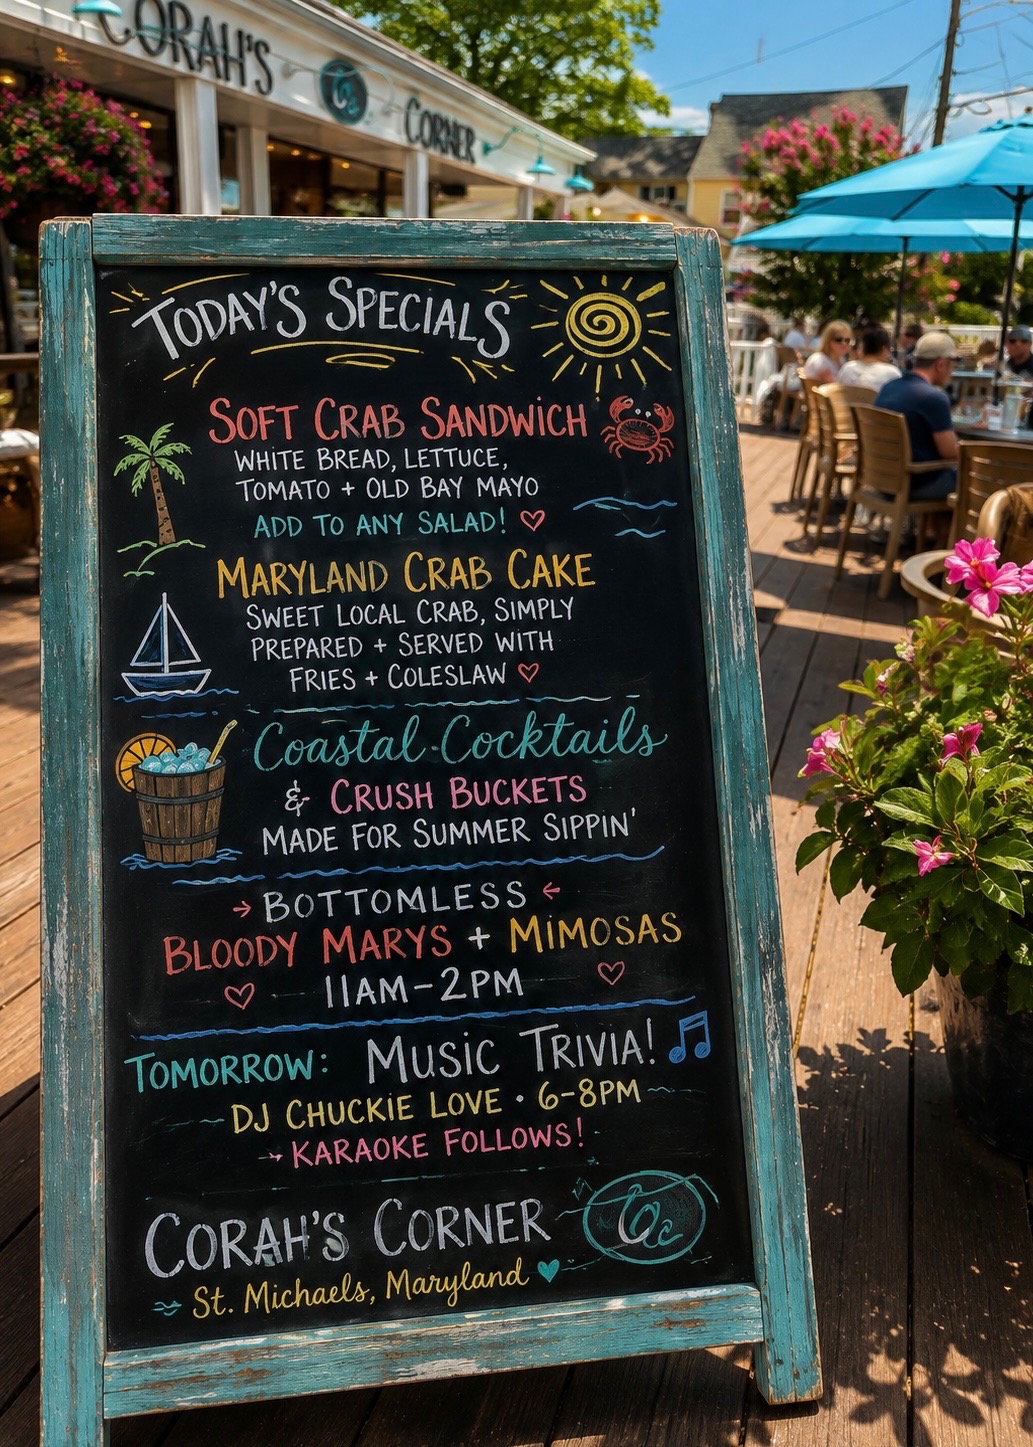 CORAH'S
CORNER
TODAY'S SPECIALS
SOFT CRAB SANDWICH
WHITE BREAD, LETTUCE,
TOMATO + OLD BAY MAYO
ADD TO ANY SALAD! ♡
MARYLAND CRAB CAKE
SWEET LOCAL CRAB, SIMPLY
PREPARED + SERVED WITH
FRIES + COLESLAW ♡
Coastal Cocktails
& CRUSH BUCKETS
MADE FOR SUMMER SIPPIN'
→ BOTTOMLESS ←
BLOODY MARYS + MIMOSAS
11AM-2PM
TOMORROW: MUSIC TRIVIA!
DJ CHUCKIE LOVE • 6-8PM
→ KARAOKE FOLLOWS!
CORAH'S CORNER
St. Michaels, Maryland